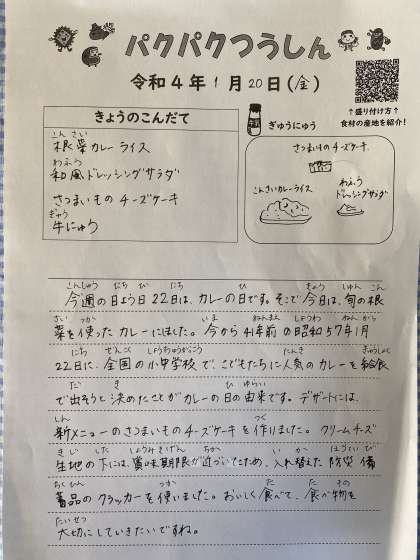 パクパクつうしん
令和4年1月20日(金)
↑盛り付け方↑
食材の産地を紹介!
きょうのこんだて
こんさい
根菜カレーライス
わふう
和風ドレッシングサラダ
さつまいものチーズケーキ
ぎゅう
牛にゅう
ぎゅうにゅう
さつまいものチーズケーキ
こんさいカレーライス
わふう
ドレッシングサラダ
こんしゅう にち び にち ひ きょう しゅん こん
今週の日よう日22日は、カレーの日です。そこで今日は、旬の根
さい つか いま ねんまえ しょうわ ねん がつ
菜を使ったカレーにしました。今から41年前の昭和57年1月
にち ぜんこく しょうちゅうがっこう にんき きゅうしょく
22日に、全国の小中学校で、こどもたちに人気のカレーを給食
だ き ひ ゆらい
で出そうと決めたことがカレーの日の由来です。デザートには、
しん つく
新メニューのさつまいものチーズケーキを作りました。クリームチーズ
きじ した しょうみきげん ちか い か ぼうさい び
生地の下には、賞味期限が近づいてきたため、入れ替えた防災備
ちくひん つか た た もの
蓄品のクラッカーを使いました。おいしく食べて、食べ物を
たいせつ
大切にしていきたいですね。